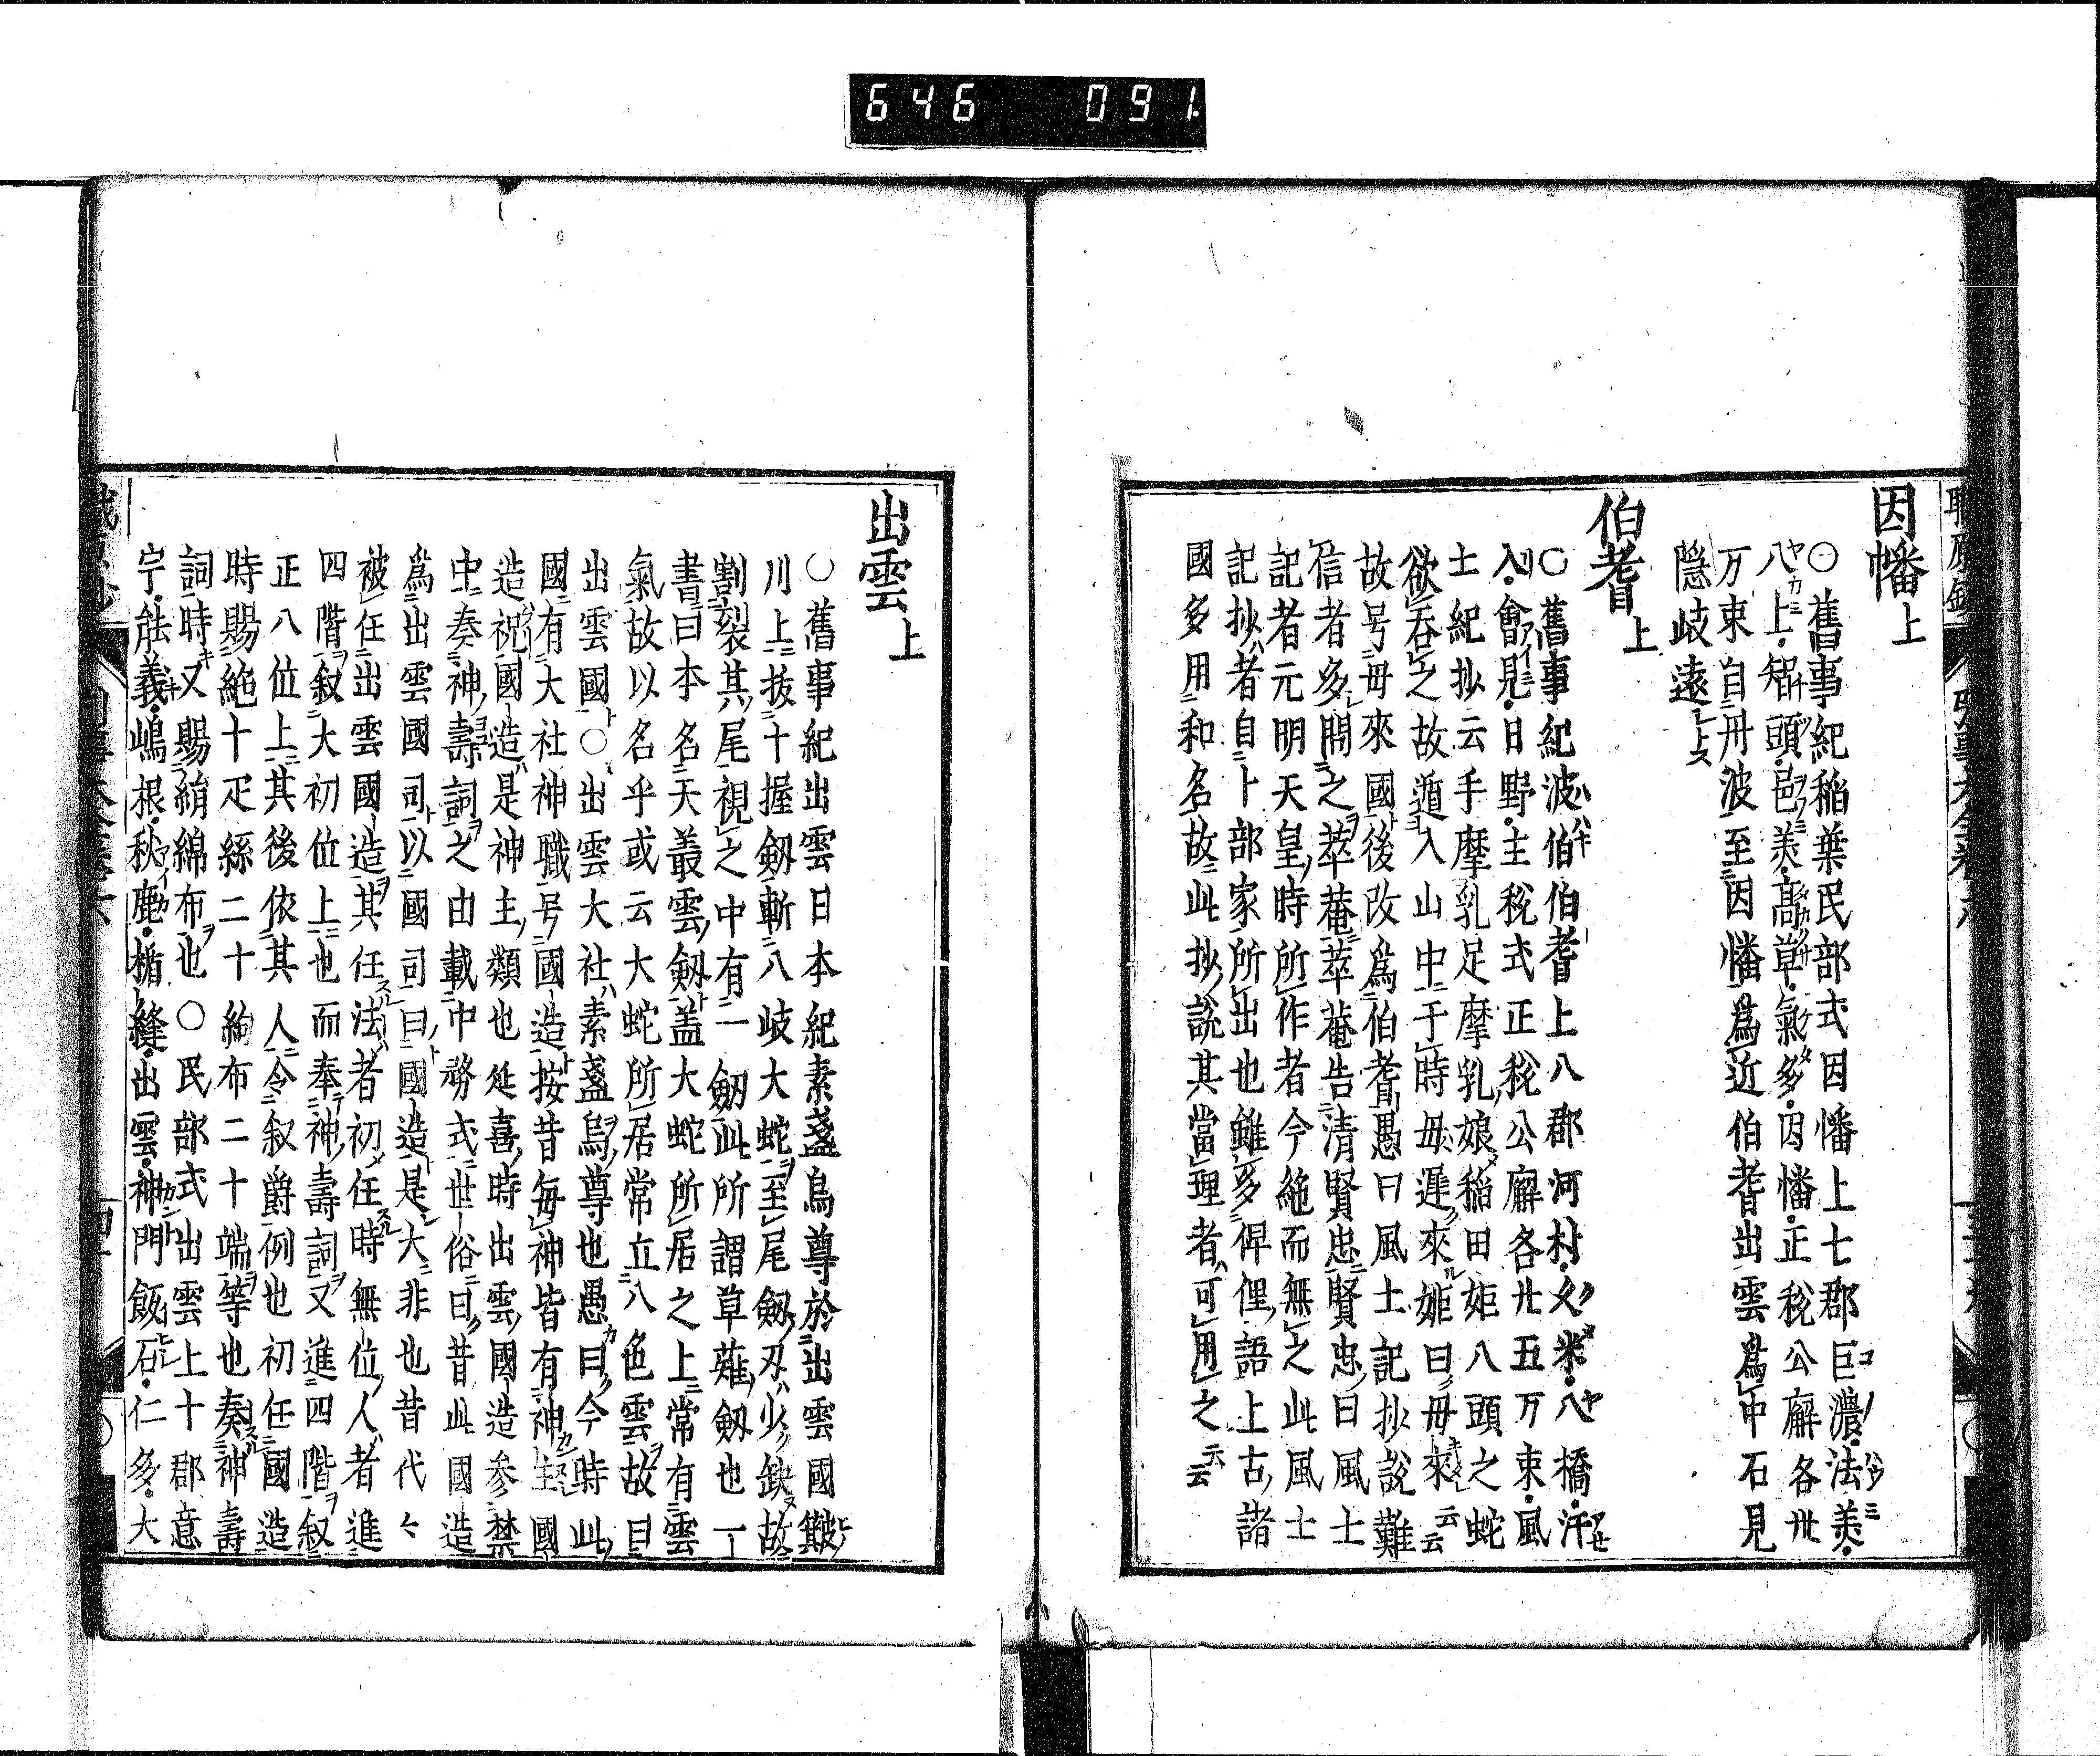 646 091
因幡上
〇舊事紀稲葉民部式因幡上七郡巨濃法美
八上智頭邑美髙草氣多因幡正税公廨各卅
万束自丹波至因幡爲近伯耆出雲爲中石見
隠岐遠
伯耆上
〇舊事紀波伯伯耆上八郡河村久米八橋汗
入會見日野主税式正税公廨各廿五万束風
士紀抄云手摩乳足摩乳娘稲田姫八頭之蛇
欲呑之故遁入山中于時母遅來姫曰母來云云
故号母來國後改爲伯耆愚曰風土記抄説難
信者多聞之萃菴萃菴告清賢忠賢忠曰風士
記者元明天皇時所作者今絶而無之此風士
記抄者自卜部家所出也雖多俚俚語上古諸
國多用和名故此抄説其當理者可用之云云
出雲上
〇舊事紀出雲日本紀素盞烏尊於出雲國簸
川上抜十握劔斬八岐大蛇至尾劔刃少缺故
割裂其尾視之中有一劔此所謂草薙劔也一
書曰本名天叢雲劔盖大蛇所居之上常有雲
氣故以名乎或云大蛇所居常立八色雲故曰
出雲國〇出雲大社素盞烏尊也愚曰今時此
國有大社神職号國造按昔毎神皆有神主國
造祝國造是神主類也延喜時出雲國造参禁
中奏神壽詞之由載中務式世俗曰昔此國造
爲出雲國司以國司曰國造是大非也昔代々
被任出雲國造其任法者初任時無位人者進
四階叙大初位上也而奉神壽詞又進四階叙
正八位上其後依其人令叙爵例也初任國造
時賜絁十疋絲二十絇布二十端等也奏神壽
詞時又賜絹綿布也〇民部式出雲上十郡意
宇能義嶋根秋鹿楯縫出雲神門飯石仁多大